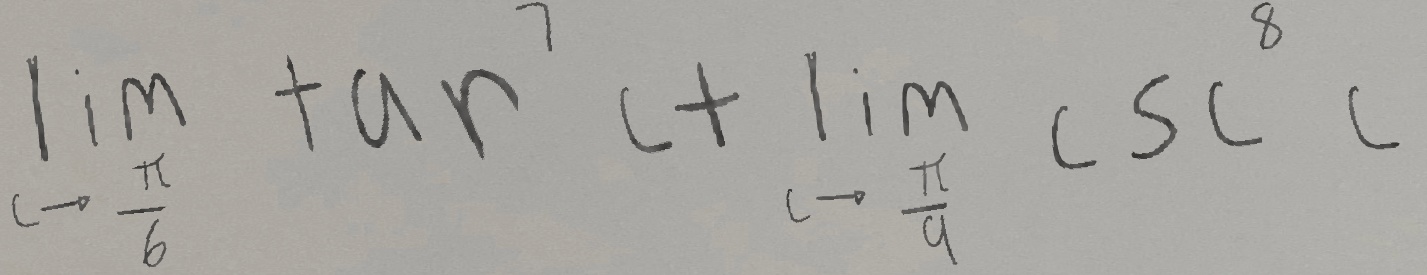 \lim_{c \to \frac{\pi}{6}} \tan^{7} c + \lim_{c \to \frac{\pi}{9}} \csc^{8} c